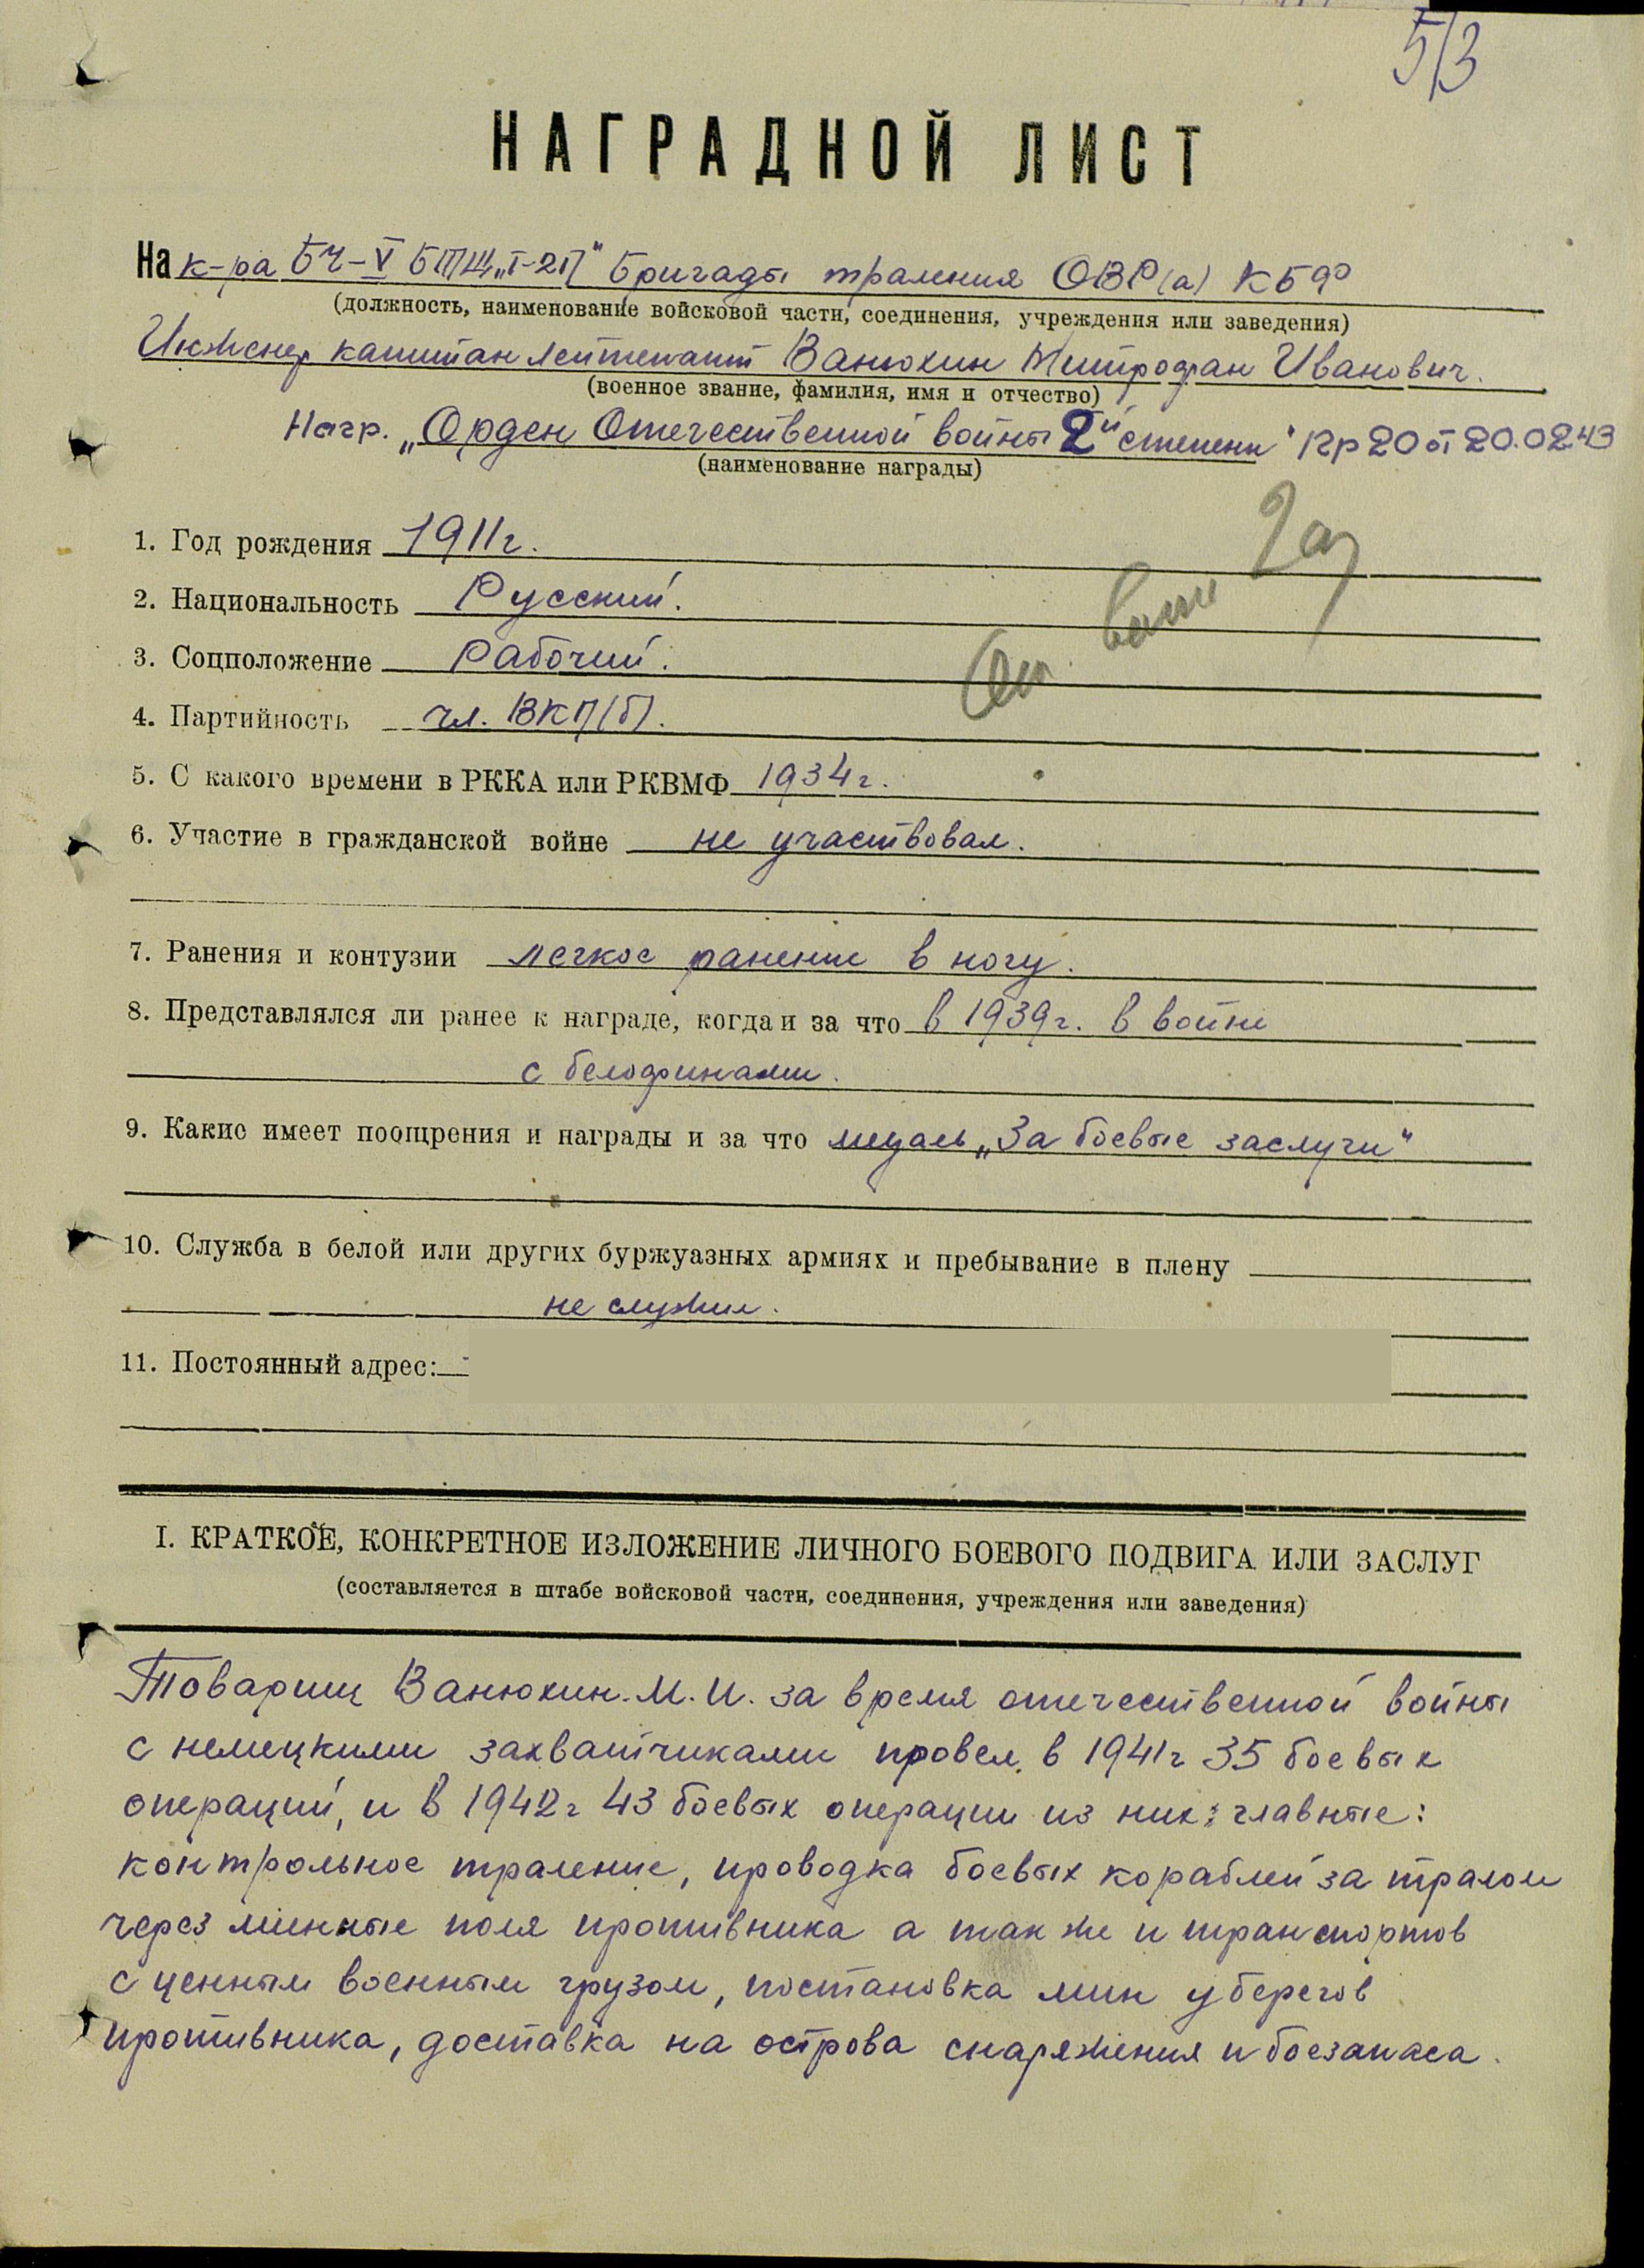 5/3
НАГРАДНОЙ ЛИСТ
На к-ра БЧ-V БТЩ „Т-211" Бригады траления ОВР(а) КБФ
(должность, наименование войсковой части, соединения, учреждения или заведения)
Инженер капитан лейтенант Ванюхин Митрофан Иванович.
(военное звание, фамилия, имя и отчество)
Нагр. „Орден Отечественной войны 2й степени" Пр 20 от 20.02.43
(наименование награды)
1. Год рождения 1911г.
2. Национальность Русский.
3. Соцположение Рабочий.
4. Партийность чл. ВКП(б).
5. С какого времени в РККА или РКВМФ 1934г.
6. Участие в гражданской войне не участвовал.
7. Ранения и контузии легкое ранение в ногу.
8. Представлялся ли ранее к награде, когда и за что в 1939г. в войне
с белофинами.
9. Какие имеет поощрения и награды и за что медаль „За боевые заслуги"
10. Служба в белой или других буржуазных армиях и пребывание в плену
не служил.
11. Постоянный адрес:
I. КРАТКОЕ, КОНКРЕТНОЕ ИЗЛОЖЕНИЕ ЛИЧНОГО БОЕВОГО ПОДВИГА ИЛИ ЗАСЛУГ
(составляется в штабе войсковой части, соединения, учреждения или заведения)
Товарищ Ванюхин. М. И. за время отечественной войны
с немецкими захватчиками провел в 1941г 35 боевых
операций, и в 1942г 43 боевых операции из них: главные:
контрольное траление, проводка боевых кораблей за тралом
через минные поля противника а так же и транспортов
с ценным военным грузом, постановка мин у берегов
противника, доставка на острова снаряжения и боезапаса.